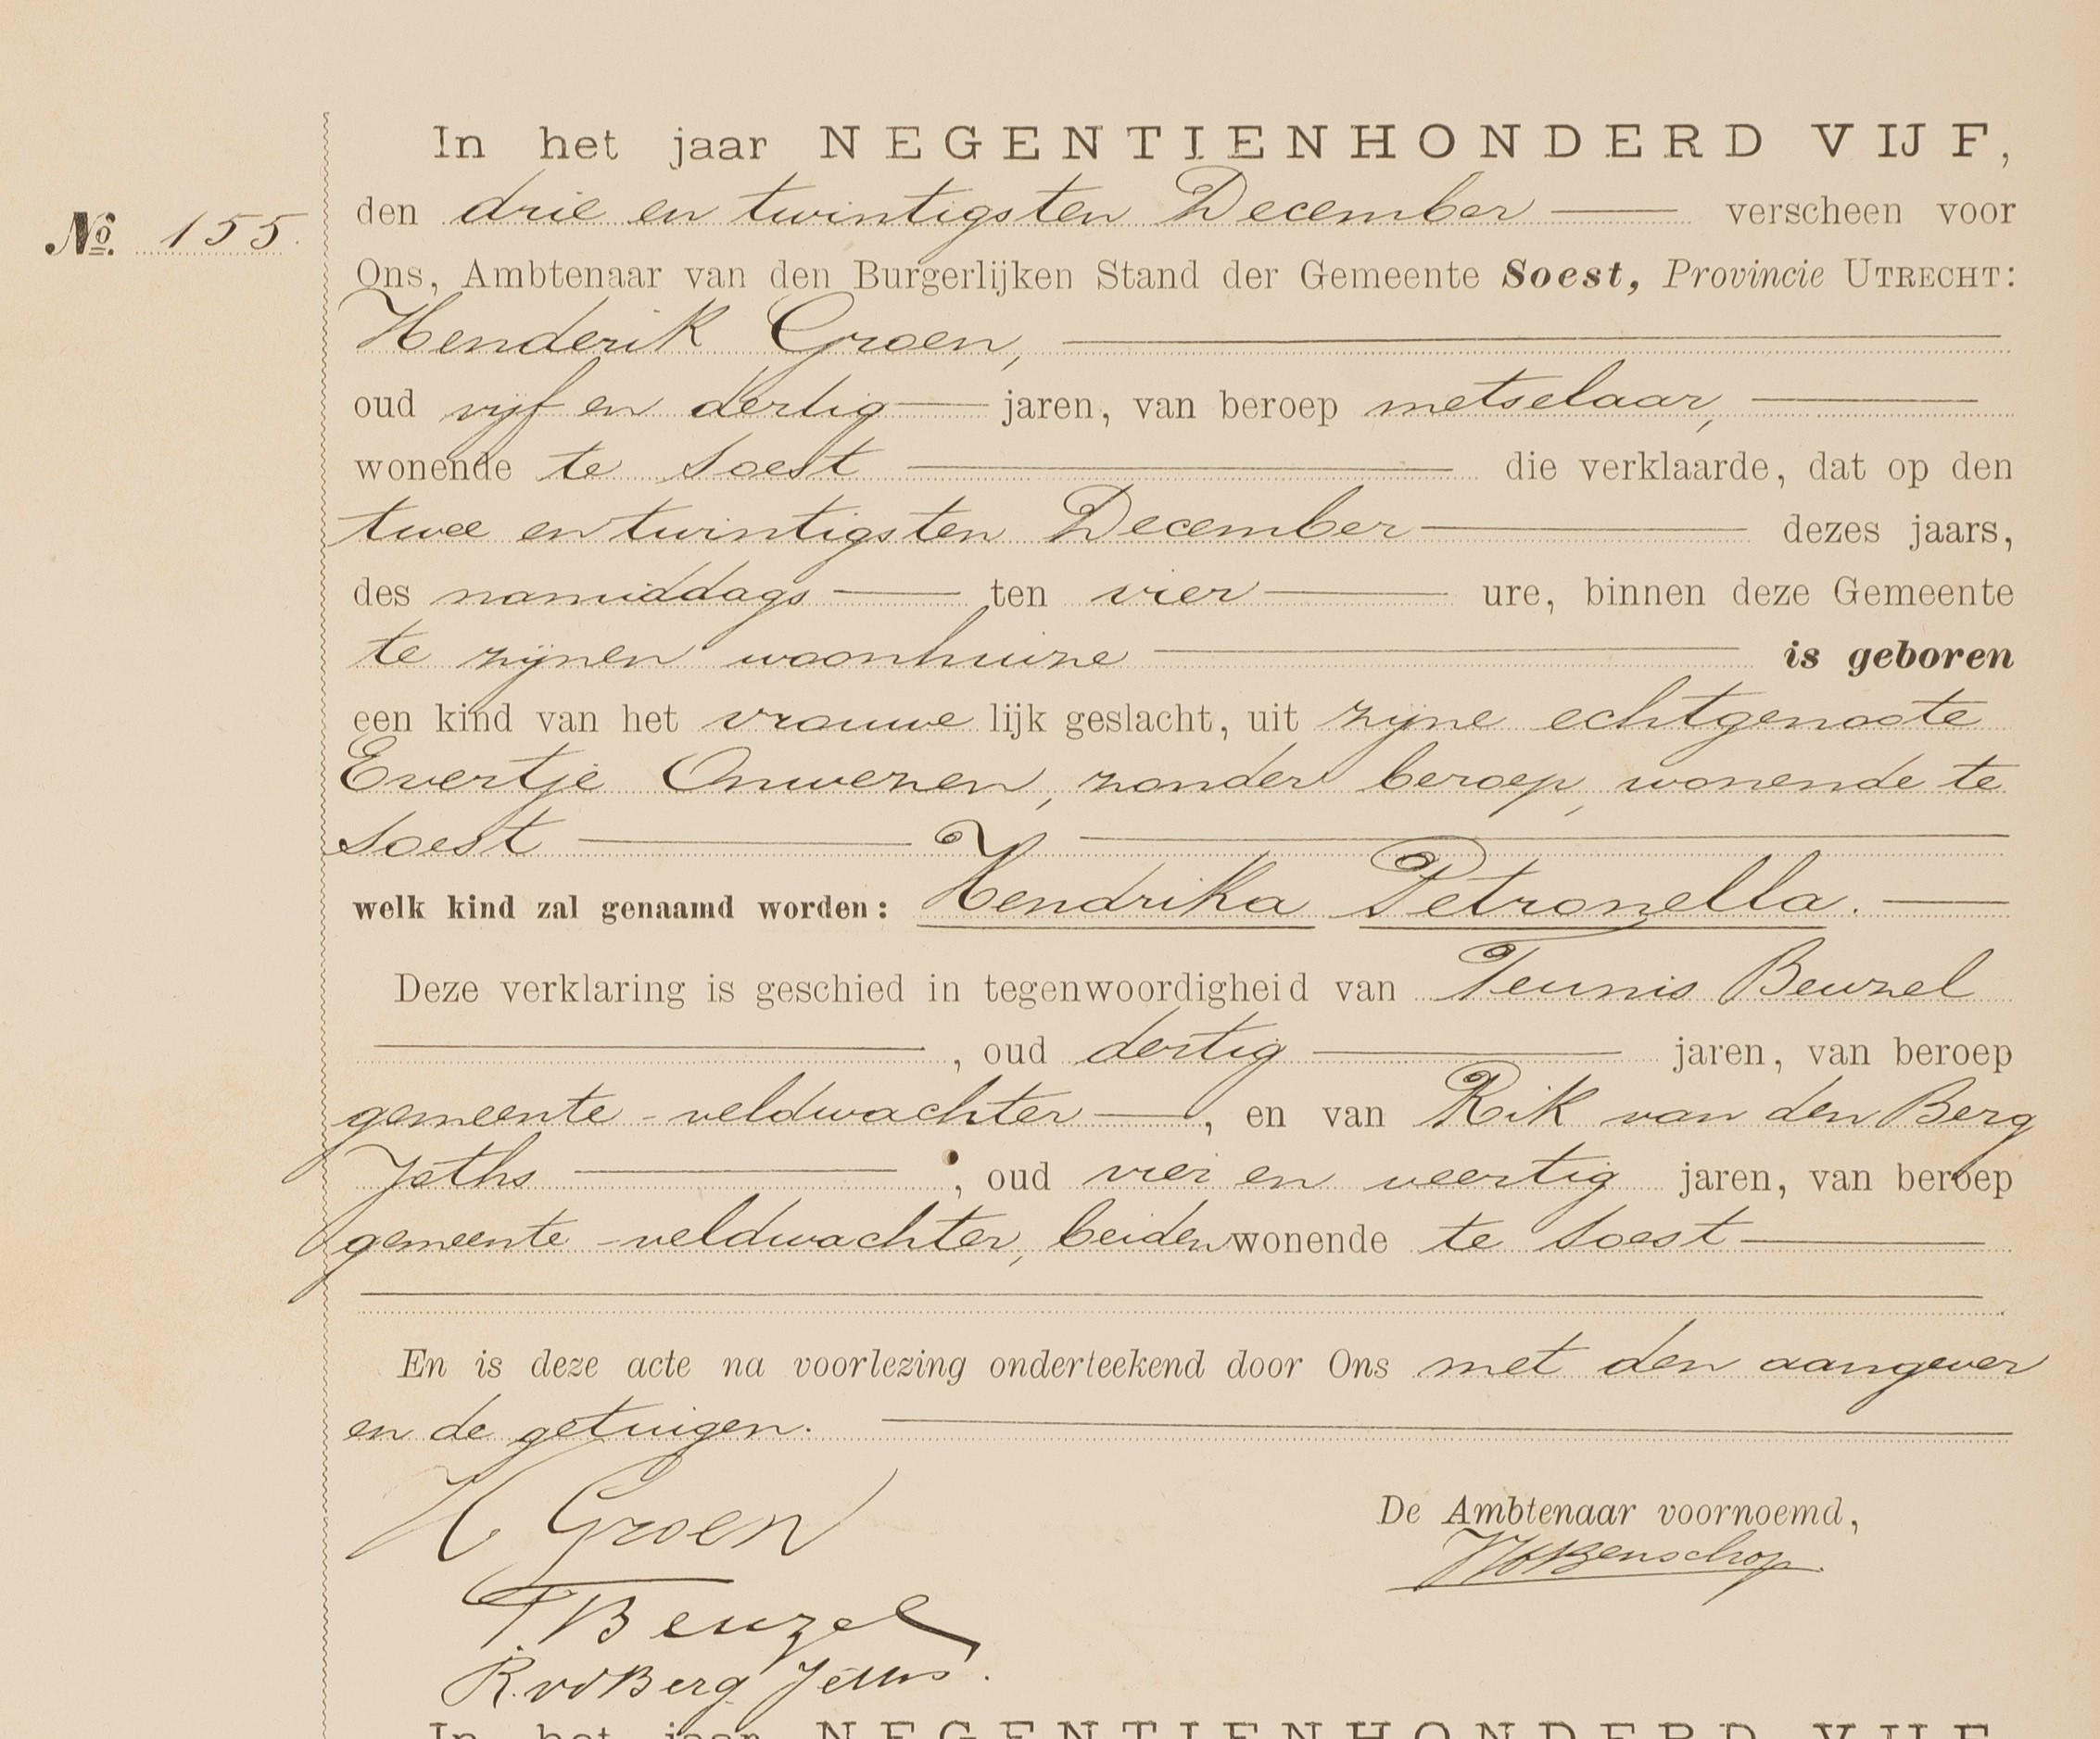 In het jaar NEGENTIENHONDERD VIJF,
No. 155. den drie en twintigsten December verscheen voor
Ons, Ambtenaar van den Burgerlijken Stand der Gemeente Soest, Provincie UTRECHT:
Henderik Groen,
oud vijf en dertig jaren, van beroep metselaar,
wonende te Soest die verklaarde, dat op den
twee en twintigsten December dezes jaars,
des namiddags ten vier ure, binnen deze Gemeente
te zijnen woonhuize is geboren
een kind van het vrouwelijk geslacht, uit zijne echtgenoote
Evertje Onwezen, zonder beroep, wonende te
Soest
welk kind zal genaamd worden: Hendrika Petronella.
Deze verklaring is geschied in tegenwoordigheid van Teunis Beuzel
, oud dertig jaren, van beroep
gemeente-veldwachter, en van Rik van den Berg
Jeths, oud vier en veertig jaren, van beroep
gemeente-veldwachter, beiden wonende te Soest
En is deze acte na voorlezing onderteekend door Ons met den aangever
en de getuigen.
H Groen
De Ambtenaar voornoemd,
T Beuzel
R. vd Berg Jeths.
In het jaar NEGENTIENHONDERD VIJF